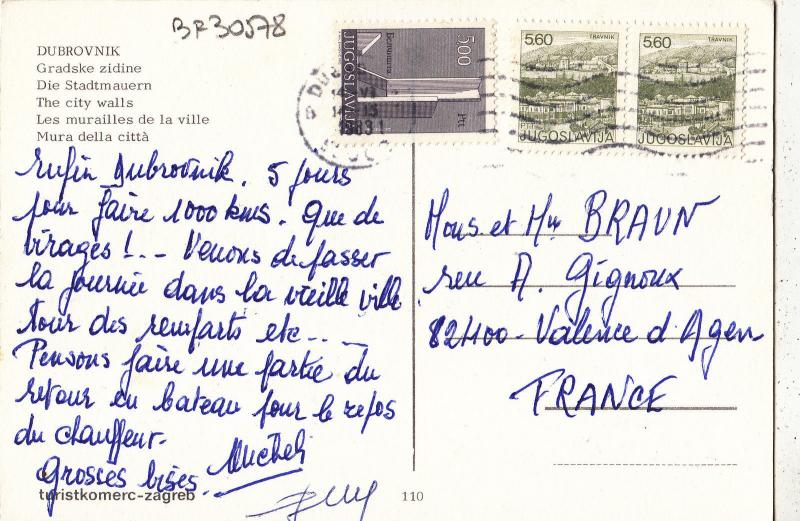 BR30578
DUBROVNIK
Gradske zidine
Die Stadtmauern
The city walls
Les murailles de la ville
Mura della città
5.00
JUGOSLAVIJA
Ptt
5.60
TRAVNIK
JUGOSLAVIJA
5.60
TRAVNIK
JUGOSLAVIJA
1983
Enfin Dubrovnik. 5 jours
pour faire 1000 kms. Que de
virages !.. Venons de passer
la journée dans la vieille ville
tour des remparts etc...
Pensons faire une partie du
retour en bateau pour le repos
du chauffeur.
Grosses bises. Michel
Mons et Mme BRAUN
rue A. Gignoux
82400 - Valence d'Agen
FRANCE
turistkomerc-zagreb
110